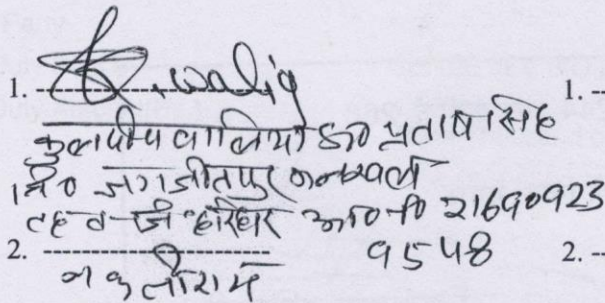 1. K. walig 1.
कुलदीप वालिया S/o प्रताप सिंह
नि० जगजीतपुर कनखल
तह व जि हरिद्वार आ०न० 21690923
9548
2. 2.